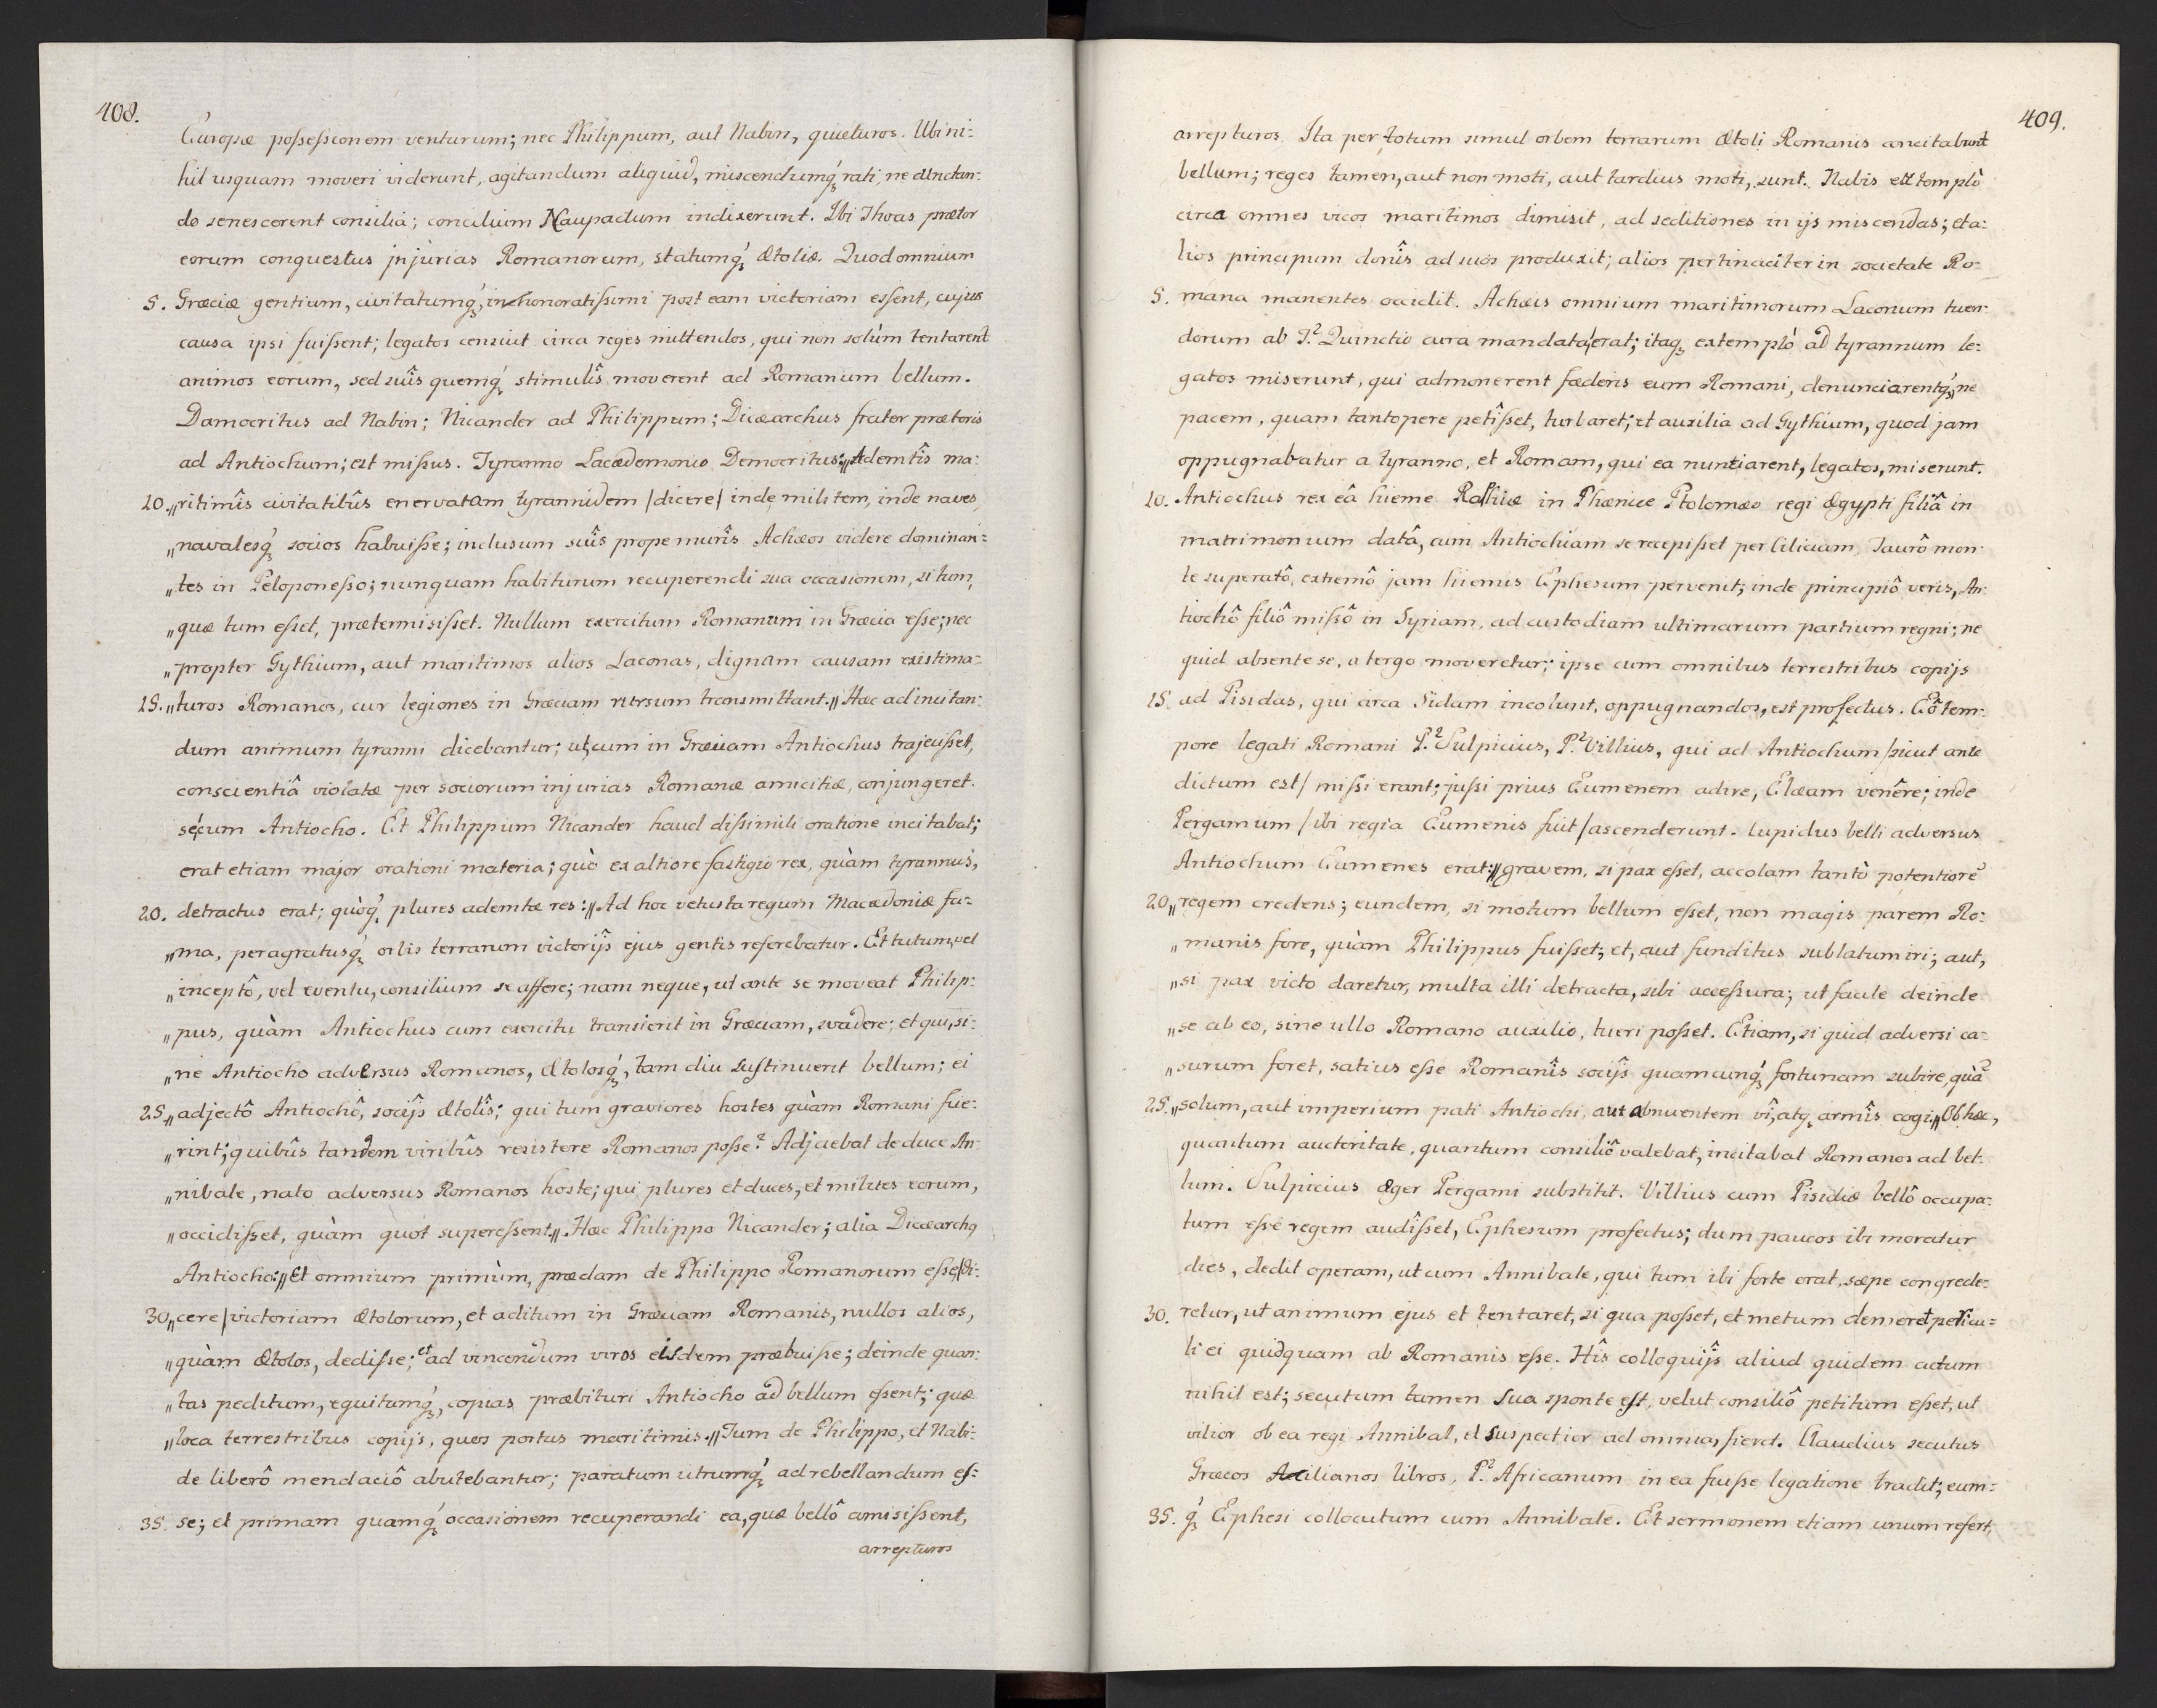 408.
Europæ possessionem venturum; nec Philippum, aut Nabin, quieturos. Ubi ni:
hil usquam moveri viderunt, agitandum aliquid, miscendumq́ꝫ rati, ne cunctan:
do senescerent consilia; concilium Naupactum indixerunt. Ibi Thoas prætor
eorum conquestus injúrias Romanorum, statumq́ꝫ Ætoliæ. Quod omnium
5. Græciæ gentium, civitatumq́ꝫ, inhonoratissimi post eam victoriam essent, cujus
causa ipsi fuissent; legatos censuit circa reges mittendos, qui non solùm tentarent
animos eorum, sed suîs quemq́ꝫ stimulîs moverent ad Romanum bellum.
Damocritus ad Nabin; Nicander ad Philippum; Dicæarchus frater prætoris
ad Antiochum; est missus. Tyranno Lacædemonio Democritus: „Ademtîs ma:
10. „ritimîs civitatibûs enervatam tyrannidem /dicere/ inde militem, inde naves,
„navalesq́ꝫ socios habuisse; inclusum suîs prope murîs Achæos videre dominan:
„tes in Peloponesso; nunquam habiturum recuperendi sua occasionem, si tum,
„quæ tum esset, prætermisisset. Nullum exercitum Romanum in Græcia esse; nec
„propter Gythium, aut maritimos alios Laconas, dignam causam existima:
15. „turos Romanos, cur legiones in Græciam rursum transmittant.„ Hæc ad incitan:
dum animum tyranni dicebantur; ut, cum in Græciam Antiochus trajecisset,
conscientiâ violatæ per sociorum injurias Romanæ amicitiæ, conjungeret
sécum Antiocho. Et Philippum Nicander haud dissimili oratione incitabat;
erat etiam major orationi materia; quò ex altiore fastigio rex, quàm tyrannus,
20. detractus erat; quòq́ꝫ plures ademtæ res: „Ad hoc vetusta regum Macædoniæ fa:
„ma, peragratusq́ꝫ orbis terrarum victorijs ejus gentis referebatur. Et tutum, vel
„inceptô, vel eventu, consilium se affere; nam neque, ut ante se moveat Philip:
„pus, quàm Antiochus cum exercitu transierit in Græciam, svadere; et qui, si:
„ne Antiocho adversus Romanos, Ætolosq́ꝫ, tam diu sustinuerit bellum; ei
25. „adjectô Antiochô, socijs Ætolîs; qui tum graviores hostes quàm Romani fue:
„rint; quibûs tandem viribûs resistere Romanos posse? Adjciebat de duce An:
„nibale, nato adversus Romanos hoste; qui plures et duces, et milites eorum,
„occidisset, quàm quot superessent„ Hæc Philippo Nicander; alia Dicæarchꝯ
Antiocho: „Et omnium primùm, prædam de Philippo Romanorum esse /di:
30. „cere/ victoriam Ætolorum, et aditum in Græciam Romanis, nullos alios,
„quàm Ætolos, dedisse; et ad vincendum viros eisdem præbuisse; deinde quan:
„tas peditum, equitumq́ꝫ, copias præbituri Antiocho ad bellum essent; quæ
„loca terrestribus copijs, quos portus maritimis.„ Tum de Philippo, et Nabi:
de liberô mendaciô abutebantur; paratum utrumq́ꝫ ad rebellandum es:
35. se; et primam quamq́ꝫ occasionem recuperandi ea, quæ bellô amisissent,
arrepturos
409.
arrepturos. Ita per totum simul orbem terrarum Ætoli Romanis concitabunt
bellum; reges tamen, aut non moti, aut tardius moti, sunt. Nabis extomplò
circa omnes vicos maritimos dimisit, ad seditiones in ijs miscendas; et a:
lios principum donîs ad suos produxit; alios pertinaciter in societate Ro:
5. mana manentes occidit. Achæis omnium maritimorum Laconum tuen:
dorum ab T.² Quinctio cura mandata erat; itaqꝫ extemplò ad tyrannum le:
gatos miserunt, qui admonerent fæderis eum Romani, denunciarentq́ꝫ, ne
pacem, quam tantopere petîsset, turbaret; et auxilia ad Gythium, quod jam
oppugnabatur a tyranno, et Romam, qui ea nuntiarent, legatos, miserunt.
10. Antiochus rex eâ hieme Raphiæ in Phænice Ptolomæo regi Ægypti filiâ in
matrimonium datâ, cum Antiochiam se recepisset per Ciliciam, Taurô mon:
te superatô, extremô jam hiemis Ephesum pervenit; inde principiô veris, An:
tiochô filiô missô in Syriam, ad custodiam ultimarum partium regni; ne
quid absente se, a tergo moveretur; ipse cum omnibus terrestribus copijs
15. ad Pisidas, qui circa Sidam incolunt, oppugnandos, est profectus. Eô tem:
pore legati Romani P.² Sulpicius, P.² Villius, qui ad Antiochum /sicut ante
dictum est/ missi erant; jussi prius Eumenem adire, Elæam venêre; inde
Pergamum /ibi regia Eumenis fuit/ ascenderunt. Cupidus belli adversus
Antiochum Eumenes erat: „gravem, si pax esset, accolam tantò potentiorẽ
20. „regem credens; eundem, si motum bellum esset, non magis parem Ro:
„manis fore, quàm Philippus fuisset; et, aut funditus sublatum iri; aut,
„si pax victo daretur, multa illi detracta, sibi accessura; ut facile deinde
„se ab eo, sine ullo Romano auxilio, tueri posset. Etiam, si quid adversi ca:
„surum foret, satius esse Romanîs socijs quamcunq́ꝫ fortunam subire, quã
25. „solum, aut imperium pati Antiochi, aut abnuentem vî, atqꝫ armîs cogi„ Ob hæc,
quantum auctoritate, quantum consiliô valebat, incitabat Romanos ad bel:
lum. Sulpicius æger Pergami substitit. Villius cum Pisidiæ bellô occupa:
tum esse regem audîsset, Ephesum profectus; dum paucos ibi moratur
dies, dedit operam, ut cum Annibale, qui tum ibi forte erat, sæpe congrede:
30. retur, ut animum ejus et tentaret, si qua posset, et metum demeret pericu:
li ei quidquam ab Romanis esse. Hîs colloquijs aliud quidem actum
nihil est; secutum tamen sua sponte est, velut consiliô petitum esset, ut
vilior ob ea regi Annibal, et suspectior ad omnia, fieret. Claudius secutus
Græcos Acilianos libros, P.² Africanum in ea fuisse legatione tradit; eum:
35. q́ꝫ Ephesi collocutum cum Annibale. Et sermonem etiam unum refert,